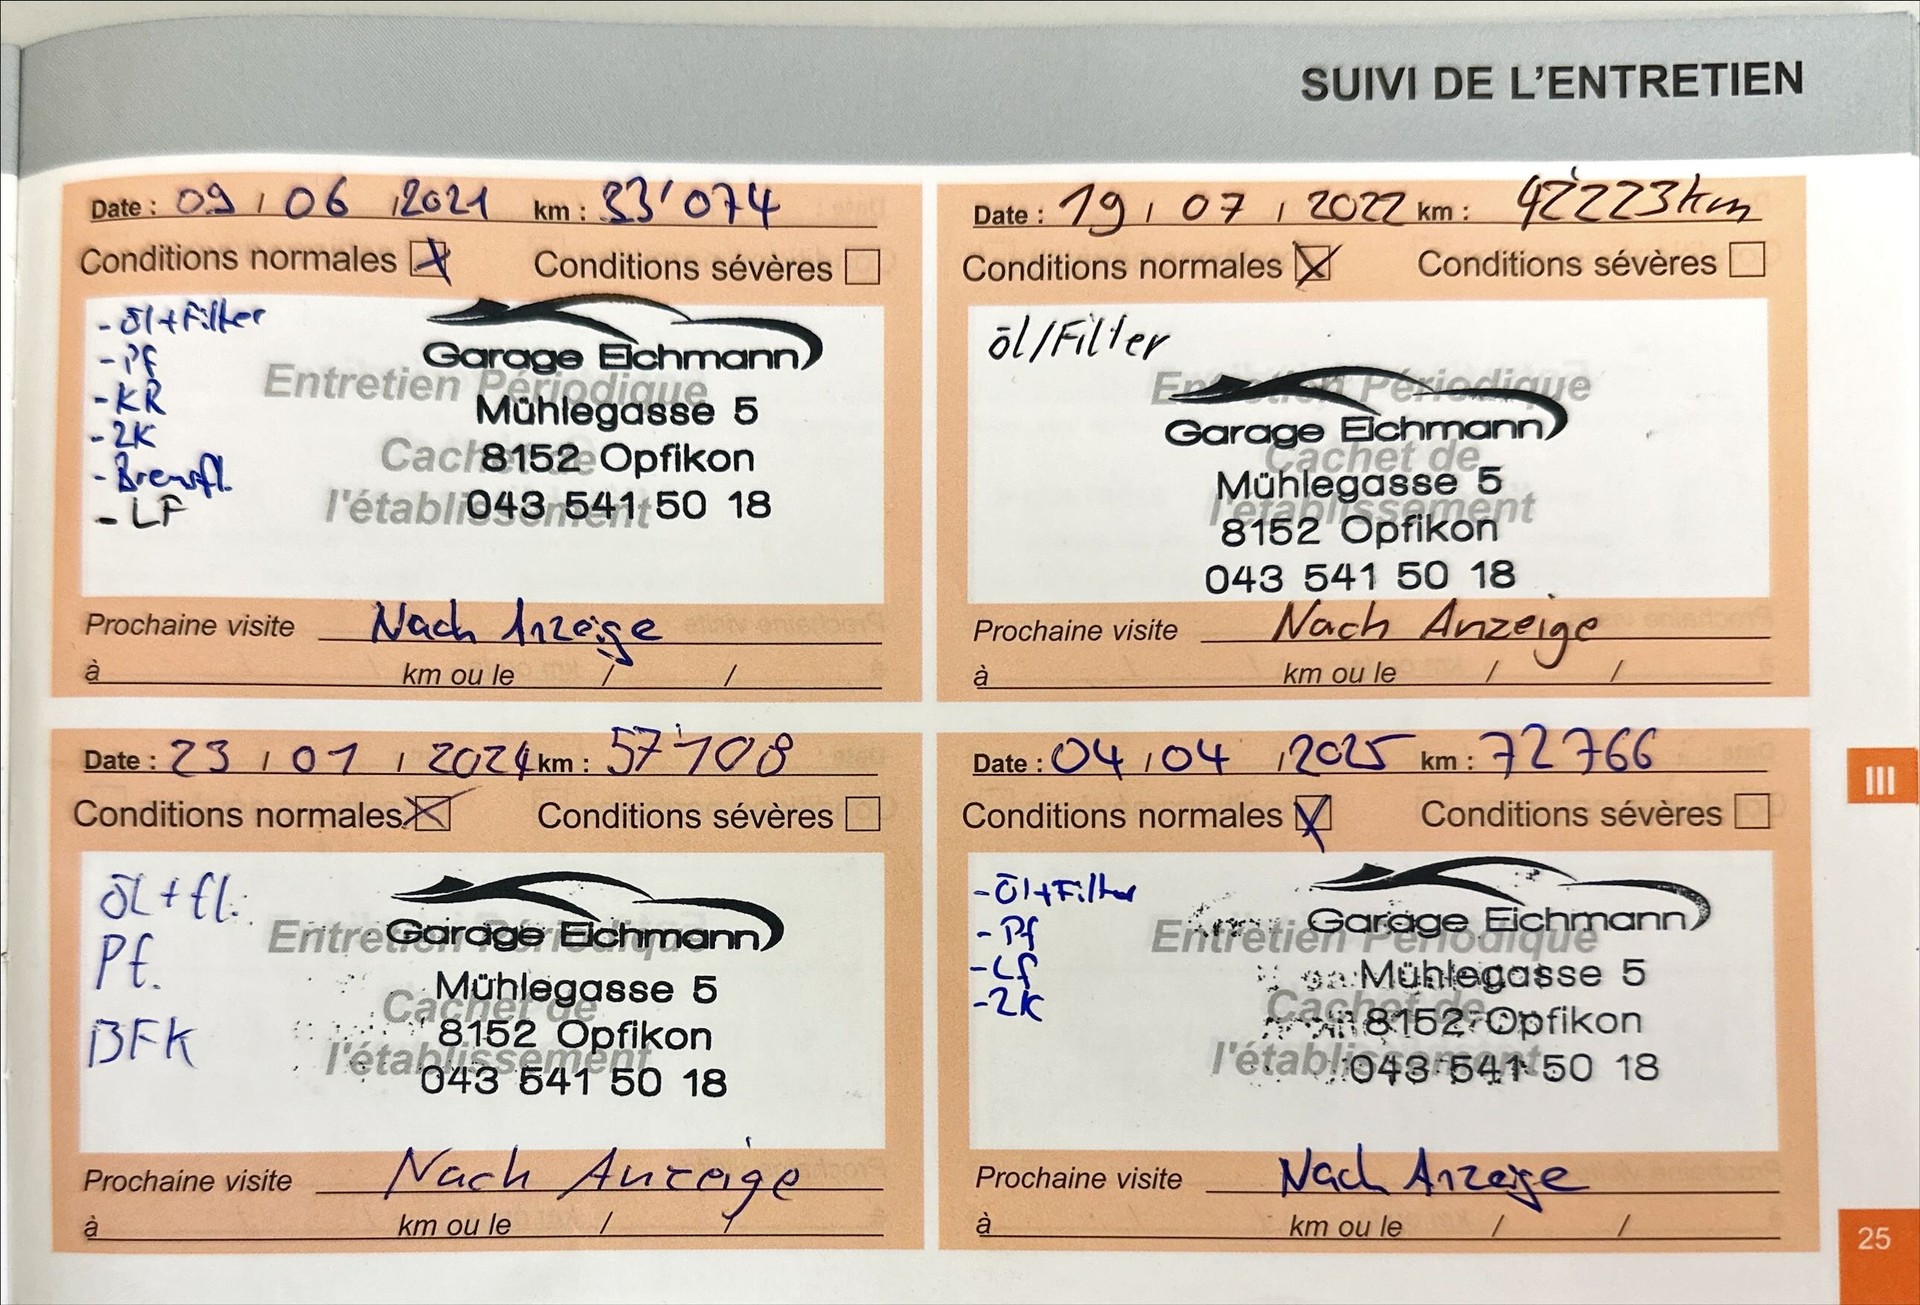 SUIVI DE L'ENTRETIEN
Date : 09 / 06 / 2021 km : 33'074
Conditions normales Conditions sévères
- öl+Filter
- Pf
- KR
- 2K
- Bremsfl.
- LF
Garage Eichmann
Entretien Périodique
Mühlegasse 5
Cachet de
8152 Opfikon
l'établissement
043 541 50 18
Prochaine visite Nach Anzeige
à km ou le / /
Date : 19 / 07 / 2022 km : 42'223km
Conditions normales Conditions sévères
öl/Filter
Entretien Périodique
Garage Eichmann
Cachet de
Mühlegasse 5
l'établissement
8152 Opfikon
043 541 50 18
Prochaine visite Nach Anzeige
à km ou le / /
Date : 23 / 01 / 2024 km : 57'108
Conditions normales Conditions sévères
öL + fl.
Pf.
BFK
Entretien Périodique
Garage Eichmann
Mühlegasse 5
Cachet de
8152 Opfikon
l'établissement
043 541 50 18
Prochaine visite Nach Anzeige
à km ou le / /
Date : 04 / 04 / 2025 km : 72766
Conditions normales Conditions sévères
- öl+Filter
- Pf
- Lf
- 2K
Garage Eichmann
Entretien Périodique
Mühlegasse 5
Cachet de
8152 Opfikon
l'établissement
043 541 50 18
Prochaine visite Nach Anzeige
à km ou le / /
III
25